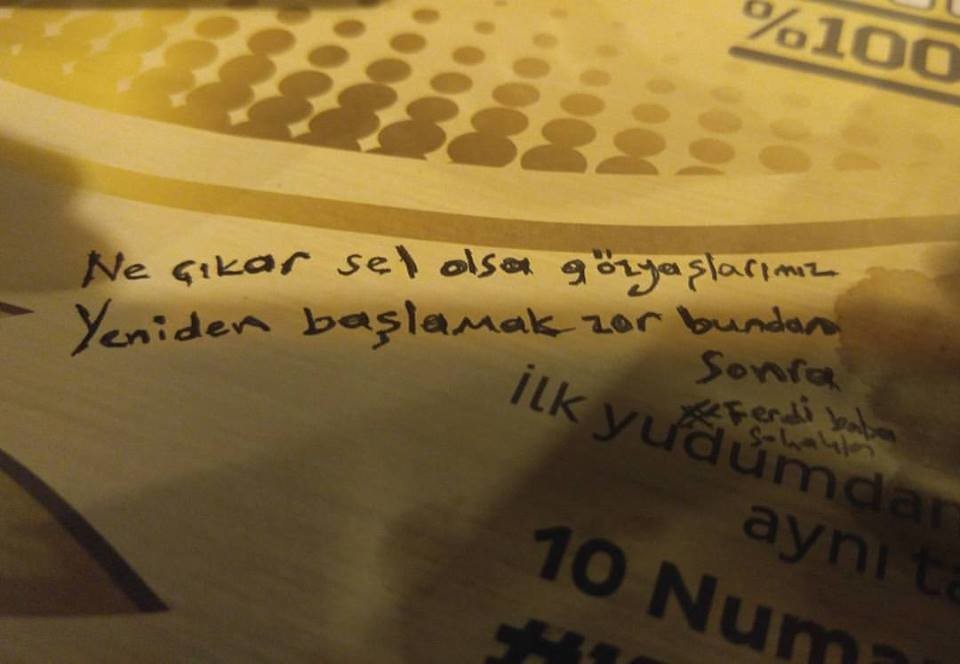 %100
Ne çıkar sel olsa gözyaşlarımız
Yeniden başlamak zor bundan
Sonra
Ferdi baba
ilk yudumdan
aynı
10 Numa